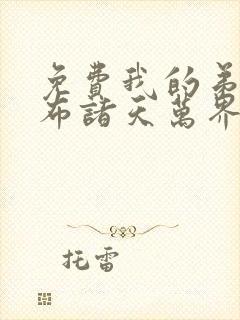 免費我的弟
布諸天萬界
托雷